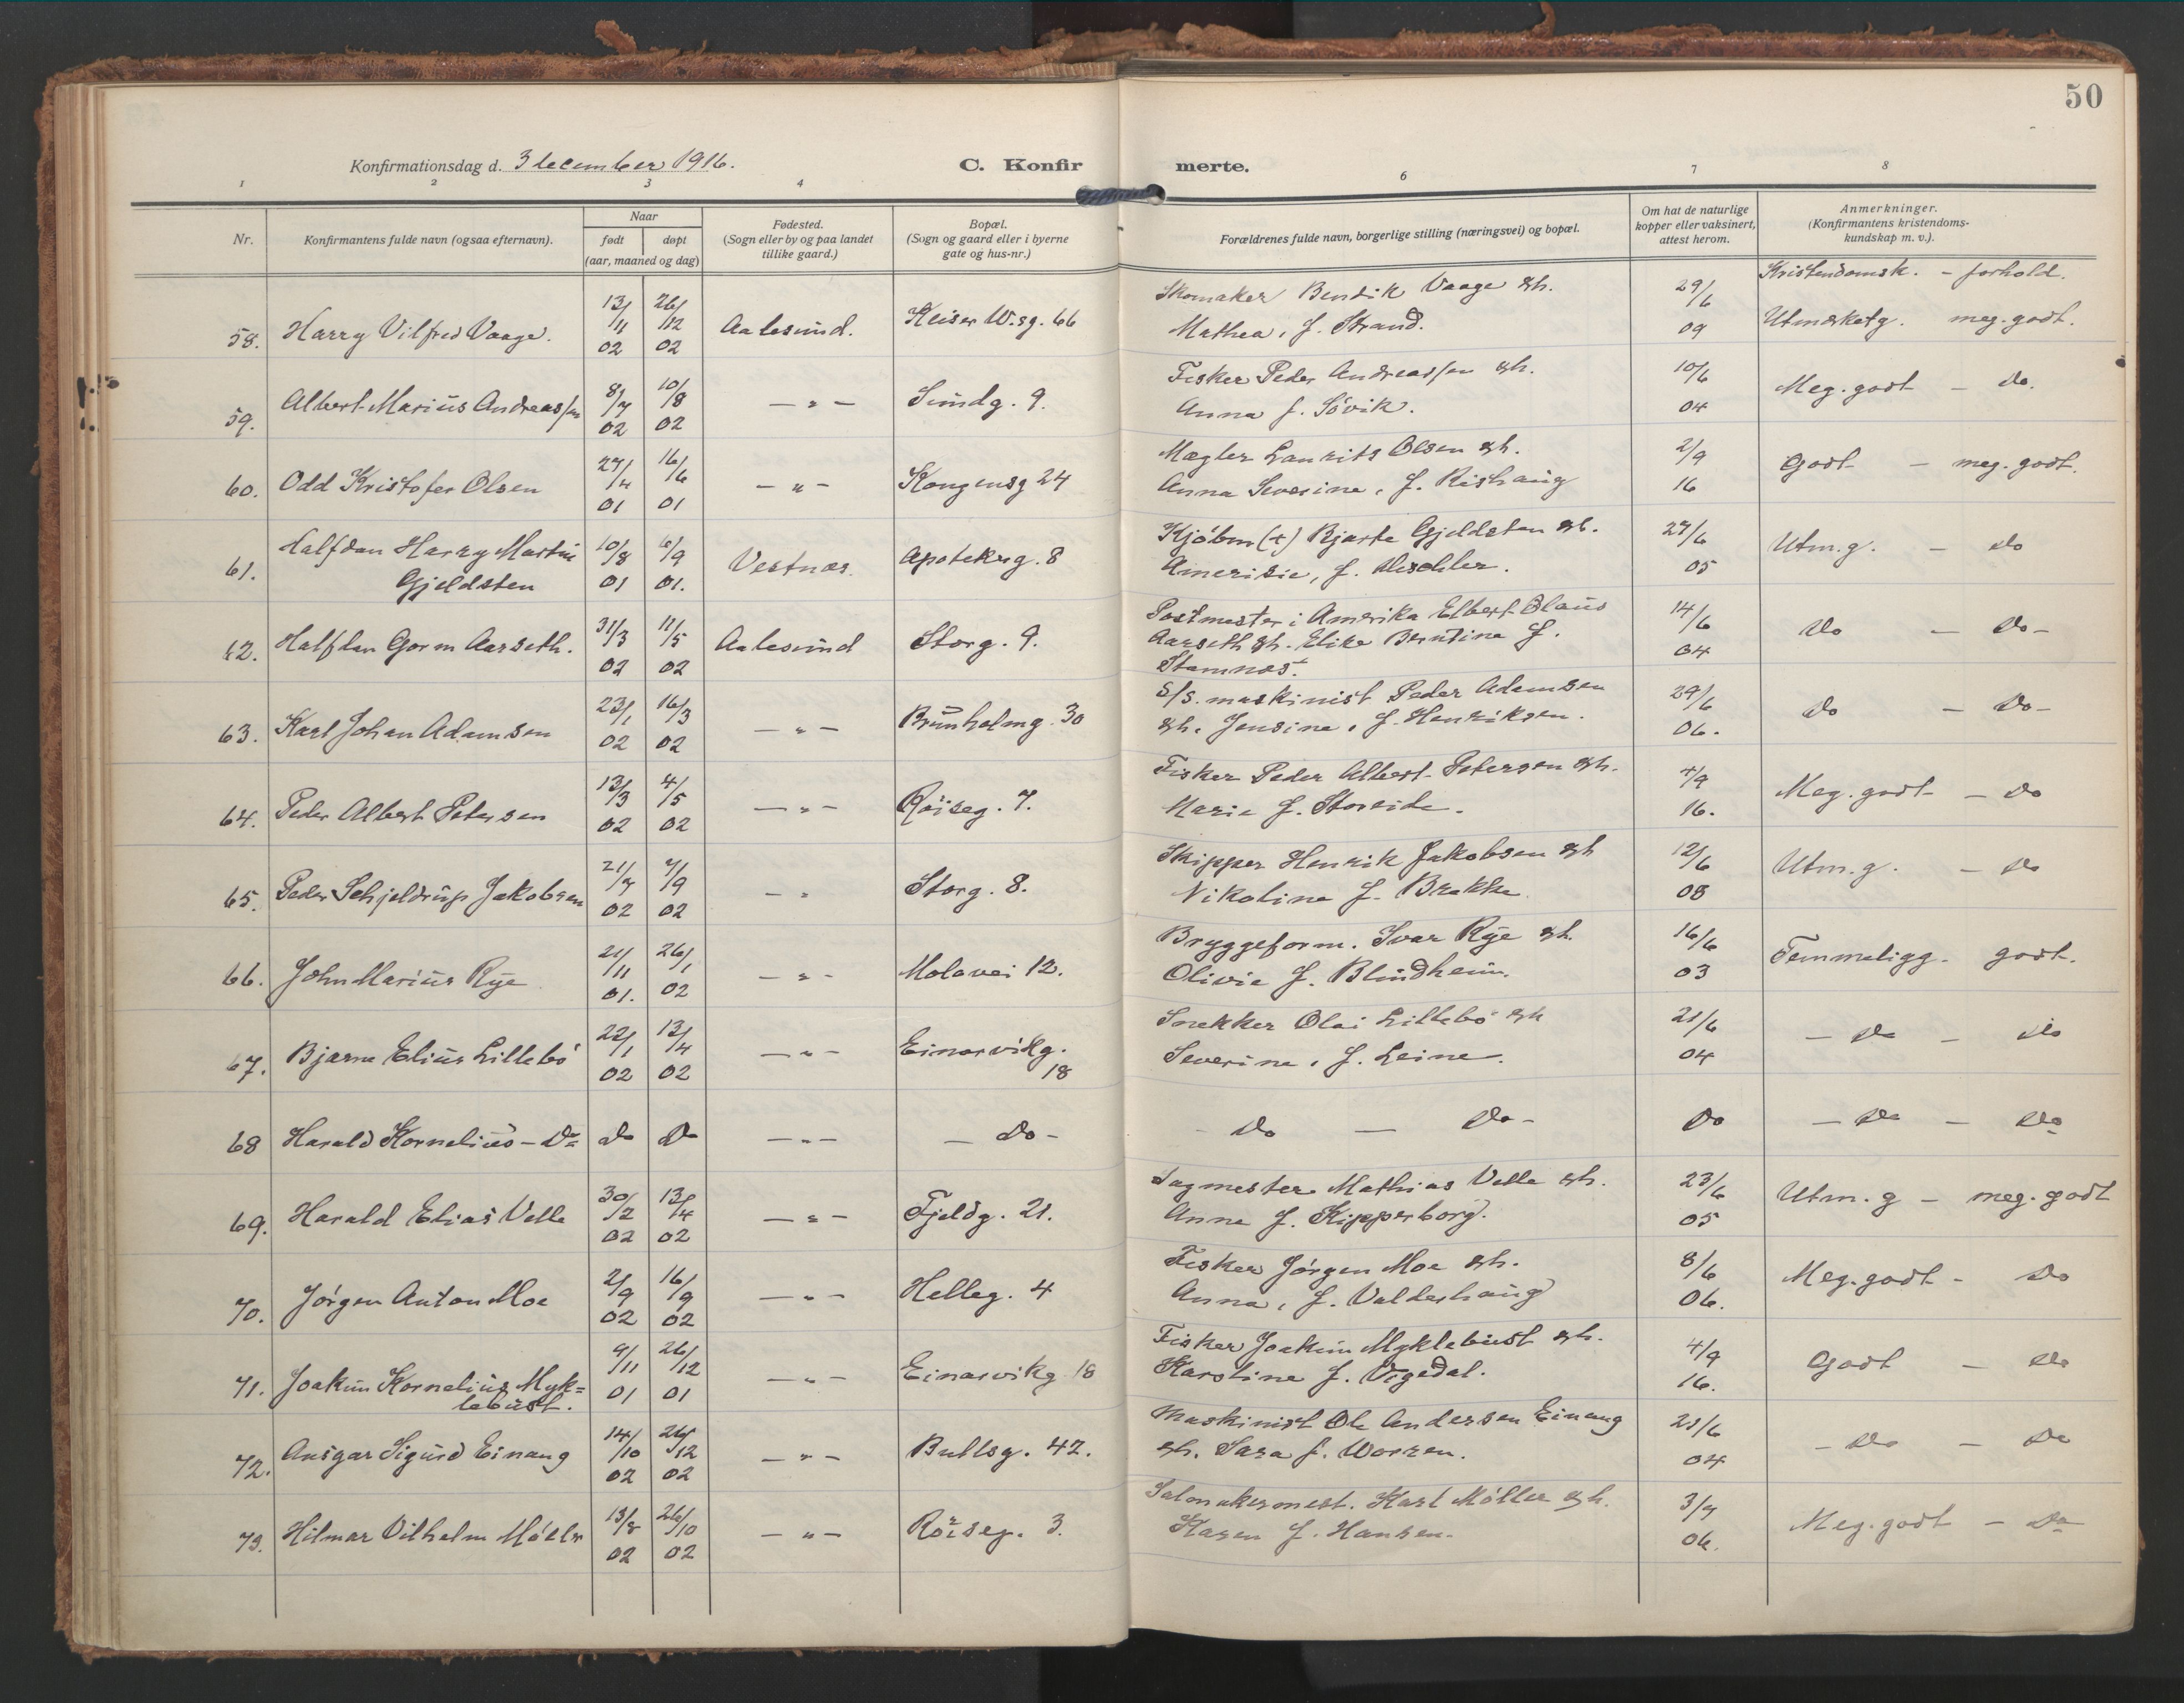 50
Konfirmationsdag d. 3 december 1916.
C. Konfir
merte.
1 2 3 4 6 7 8
Nr.
Konfirmantens fulde navn (ogsaa efternavn).
Naar
født døpt
(aar, maaned og dag)
Fødested.
(Sogn eller by og paa landet
tillike gaard.)
Bopæl.
(Sogn og gaard eller i byerne
gate og hus-nr.)
Forældrenes fulde navn, borgerlige stilling (næringsvei) og bopæl.
Om hat de naturlige
kopper eller vaksinert,
attest herom.
Anmerkninger.
(Konfirmantens kristendoms-
kundskap m. v.).
Kristendomsk. - forhold.
58. Harry Vilfred Vaage. 13/11 02 26/12 02 Aalesund. Keiser W.sg. 66
Skomaker Bendik Vaage &h.
Mathea, f. Strand. 29/6 09 Utmerketg. meg. godt.
59. Albert Marius Andreassen 8/7 02 10/8 02 — " — Sundg. 9.
Fisker Peder Andreassen &h.
Anna f. Sövik. 10/6 04 Meg. godt - do.
60. Odd Kristofer Olsen 27/4 01 16/6 01 — " — Kongensg 24
Mægler Laurits Olsen &h.
Anna Severine, f. Rishaug 2/9 16 Godt - meg. godt.
61. Halfdan Harry Martin
Gjeldsten 10/8 01 6/9 01. Vestnæs. Apotekerg. 8
Kjöbm (+) Bjarte Gjeldsten &h.
27/6 05 Utm.g. - do
62. Halfdan Gorm Aarseth. 31/3 02 11/5 02 Aalesund Storg. 9.
Postmester i Amerika Elbert Olaus
Aarseth &h. Elise Berntine f.
Stamnæs. 14/6 04 do - do -
63. Karl Johan Adamsen 23/1 02 16/3 02 — " — Brunholmg. 30
S/S. maskinist Peder Adamsen
&h. Jensine, f. Henriksen. 29/6 06. do - do -
64. Peder Albert Petersen 13/3 02 4/5 02 — " — Röiseg. 7.
Fisker Peder Albert Petersen &h.
Marie f. Storeide. 4/9 16. Meg. godt - do
65. Peder Schjeldrup Jakobsen 21/7 02 7/9 02 — " Storg. 8.
Skipper Henrik Jakobsen &h
Nikoline f. Brekke. 12/6 08 Utm.g. - do
66. John Marius Rye 21/11 01. 26/1 02 — " — Molovei 12.
Bryggeform. Ivar Rye &h.
Olivie f. Blindheim. 16/6 03 Temmeligg. godt.
67. Bjarne Elius Lillebö 22/1 02 13/4 02 — " — Einarvikg.
18
Snekker Olai Lillebö &h
Severine, f. Leine. 21/6 04 - do - do
68 Harald Kornelius - do do do — " — — do -
- do — do - do - do - do
69. Harald Elias Velle 30/2 02 13/4 02 — " — Fjeldg. 21.
Sagmester Mathias Velle &h.
Anne f. Kipperborg. 23/6 05 Utm. g - meg. godt
70. Jörgen Anton Moe 2/9 02 16/9 02 — " — Helleg. 4
Fisker Jörgen Moe &h.
Anna, f. Valderhaug 8/6 06. Meg. godt - do
71. Joakim Kornelius Myk=
lebust. 9/11 01 26/12 01 — " — Einarvikg 18
Fisker Joakim Myklebust &h.
Karoline f. Vegedal. 4/9 16. Godt - do
72. Ansgar Sigurd Einang 14/10 02 26/12 02 — " — Bullsg. 42.
Maskinist Ole Andersen Einang
&h. Sara f. Worren. 21/6 04 - do - do
73. Hilmar Vilhelm Möller 13/8 02 26/10 02 — " — Röiseg. 3.
Salmakermest. Karl Möller &h.
Karen f. Hansen. 3/7 06. Meg. godt - do